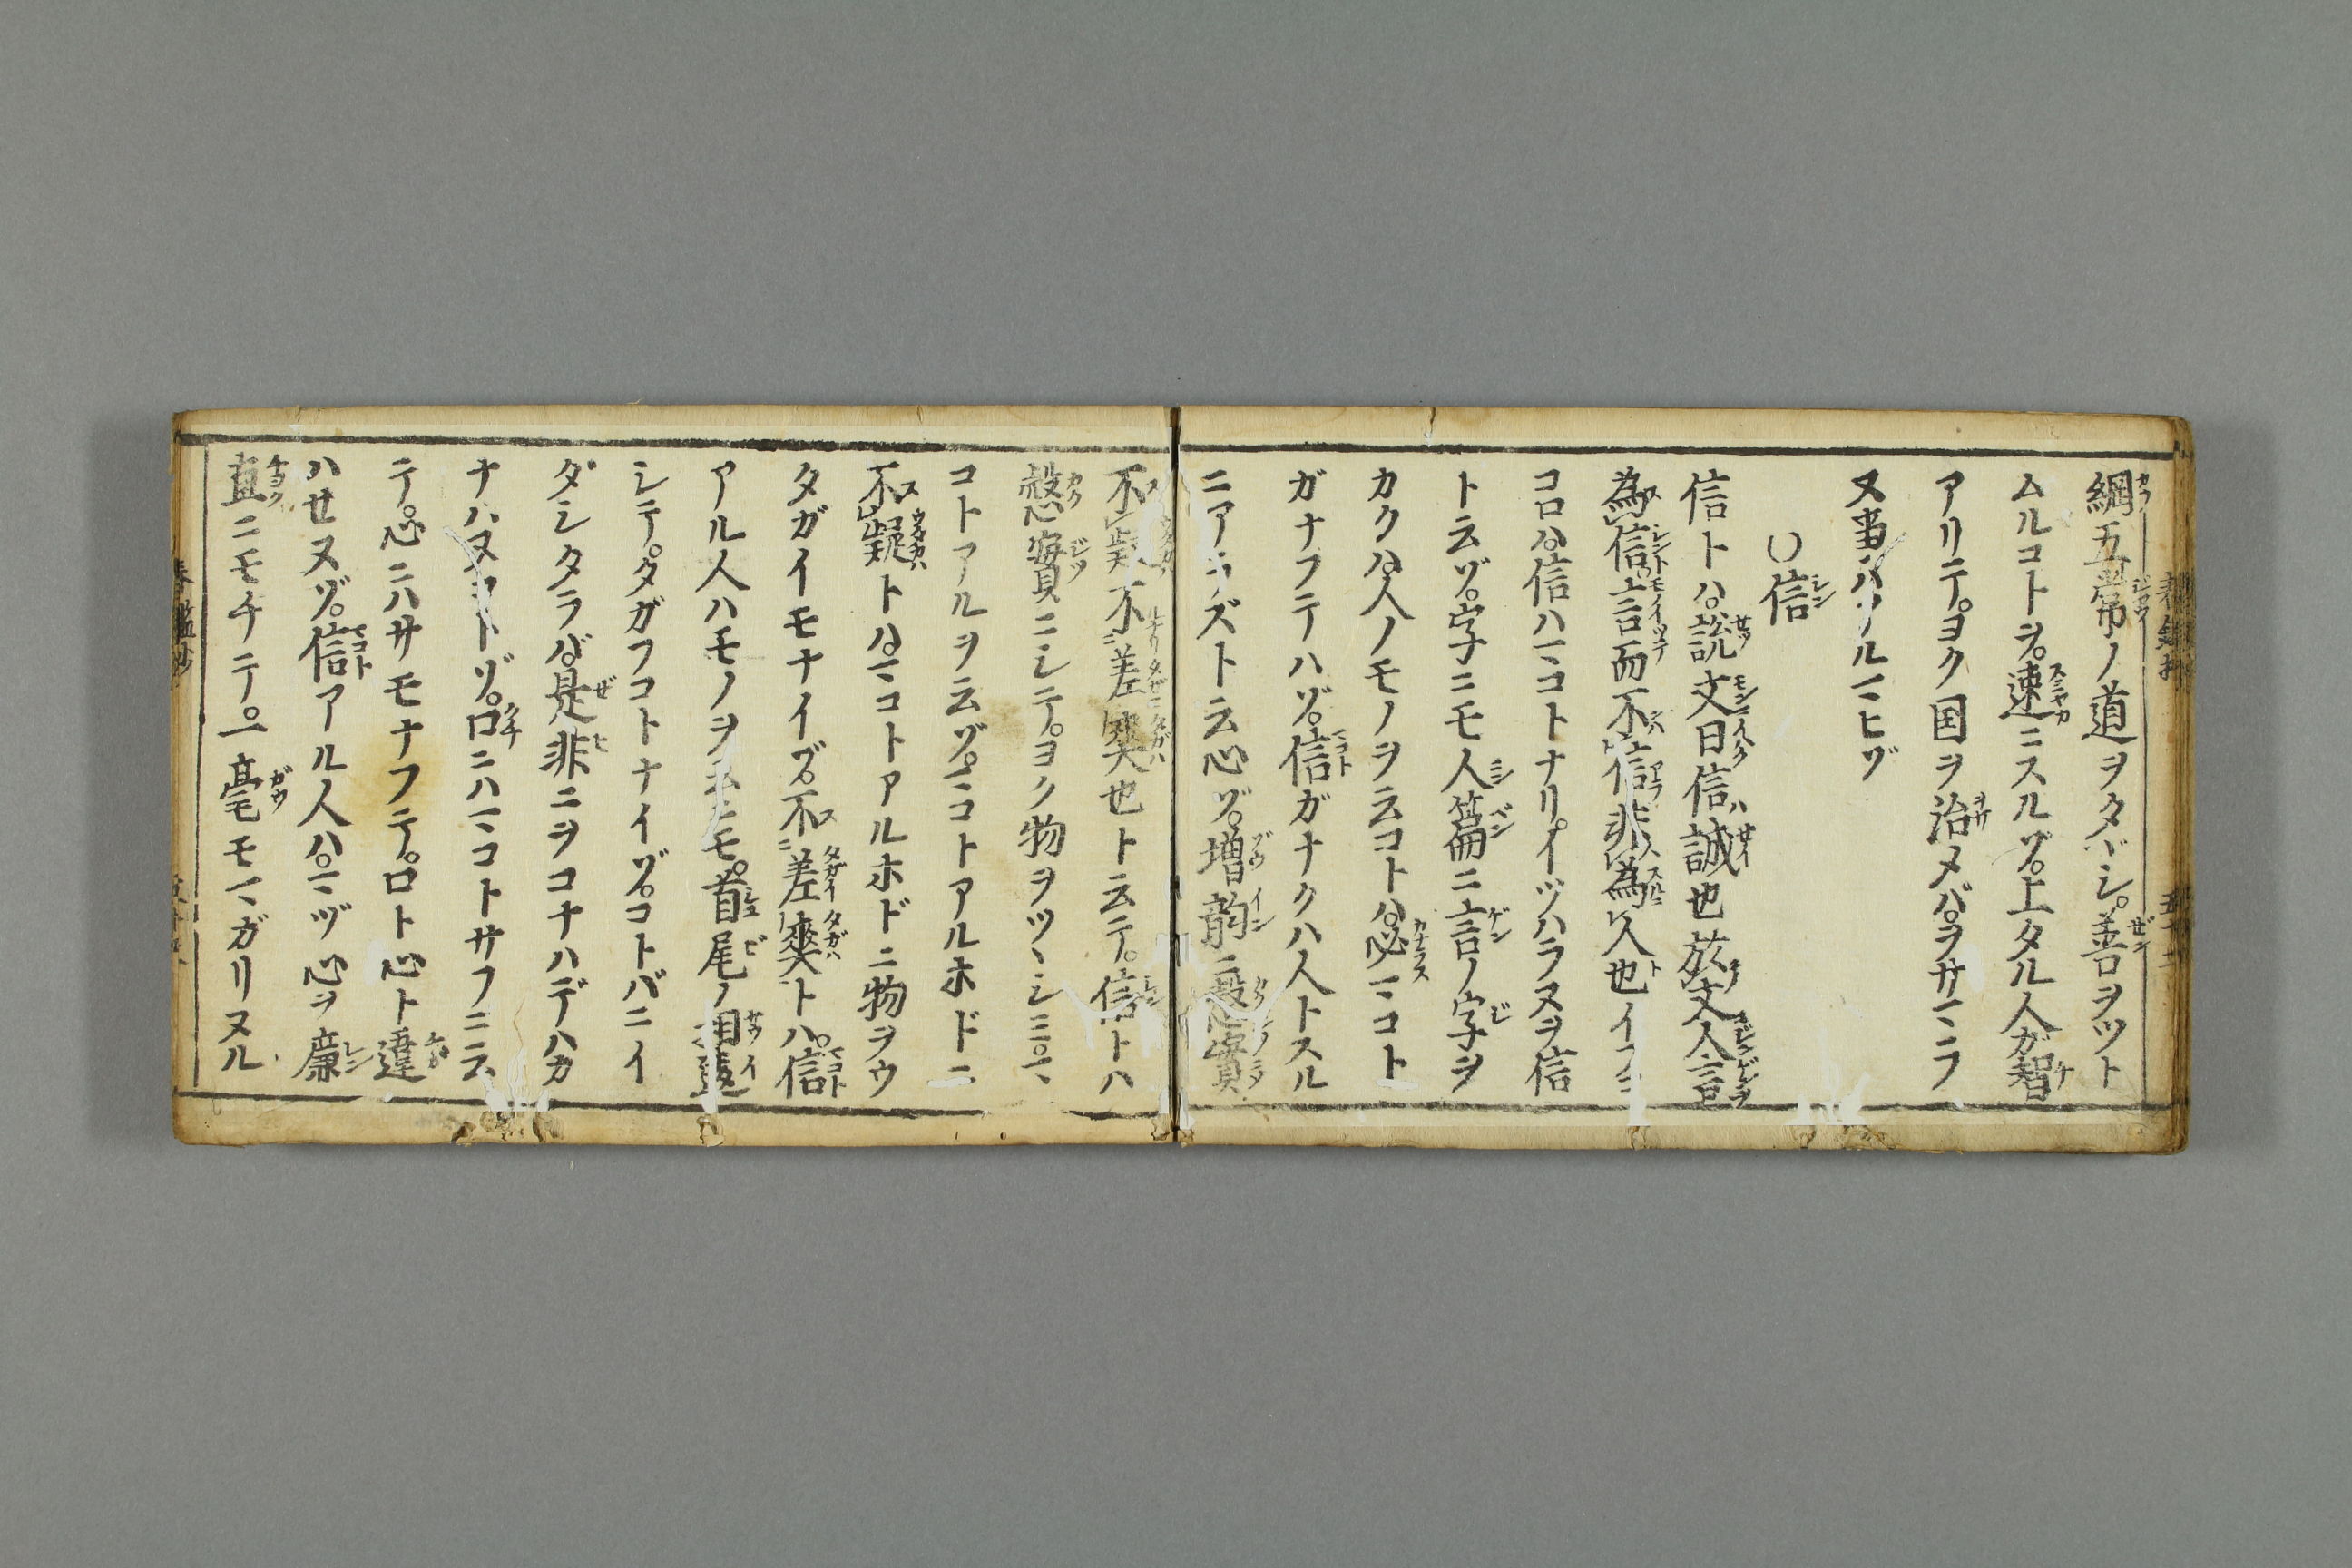 綱五常ノ道ヲタヾシ。善ヲツト
ムルコトヲ。速ニスルゾ。上タル人ガ智
アリテ。ヨク国ヲ治メバ。ヲサマラ
ヌ事ハアルマヒゾ
○信
信トハ。説文曰信ハ誠也於文人言
為信言而不信非為人也イフコ
コロハ。信ハマコトナリ。イツハラヌヲ信
ト云ゾ。字ニモ人篇ニ言ノ字ヲ
カクハ。人ノモノヲ云コトハ。必マコト
ガナフテハゾ。信ガナクハ人トスル
ニアラズト云心ゾ。増韵ニ愨實
不疑不差爽也ト云テ。信トハ
愨實ニシテ。ヨク物ヲツヽシミ。マ
コトアルヲ云ゾ。マコトアルホドニ
不疑トハ。マコトアルホドニ物ヲウ
タガイモナイゾ。不差爽トハ。信
アル人ハモノヲ云ニモ。首尾ノ相違
シテ。タガフコトナイゾ。コトバニイ
ダシタラバ。是非ニヲコナハデハカ
ナハヌコトゾ。口ニハマコトサフニ云
テ。心ニハサモナフテ。口ト心ト違
ハセヌゾ。信アル人ハ。マヅ心ヲ廉
直ニモチテ。一毫モマガリヌル